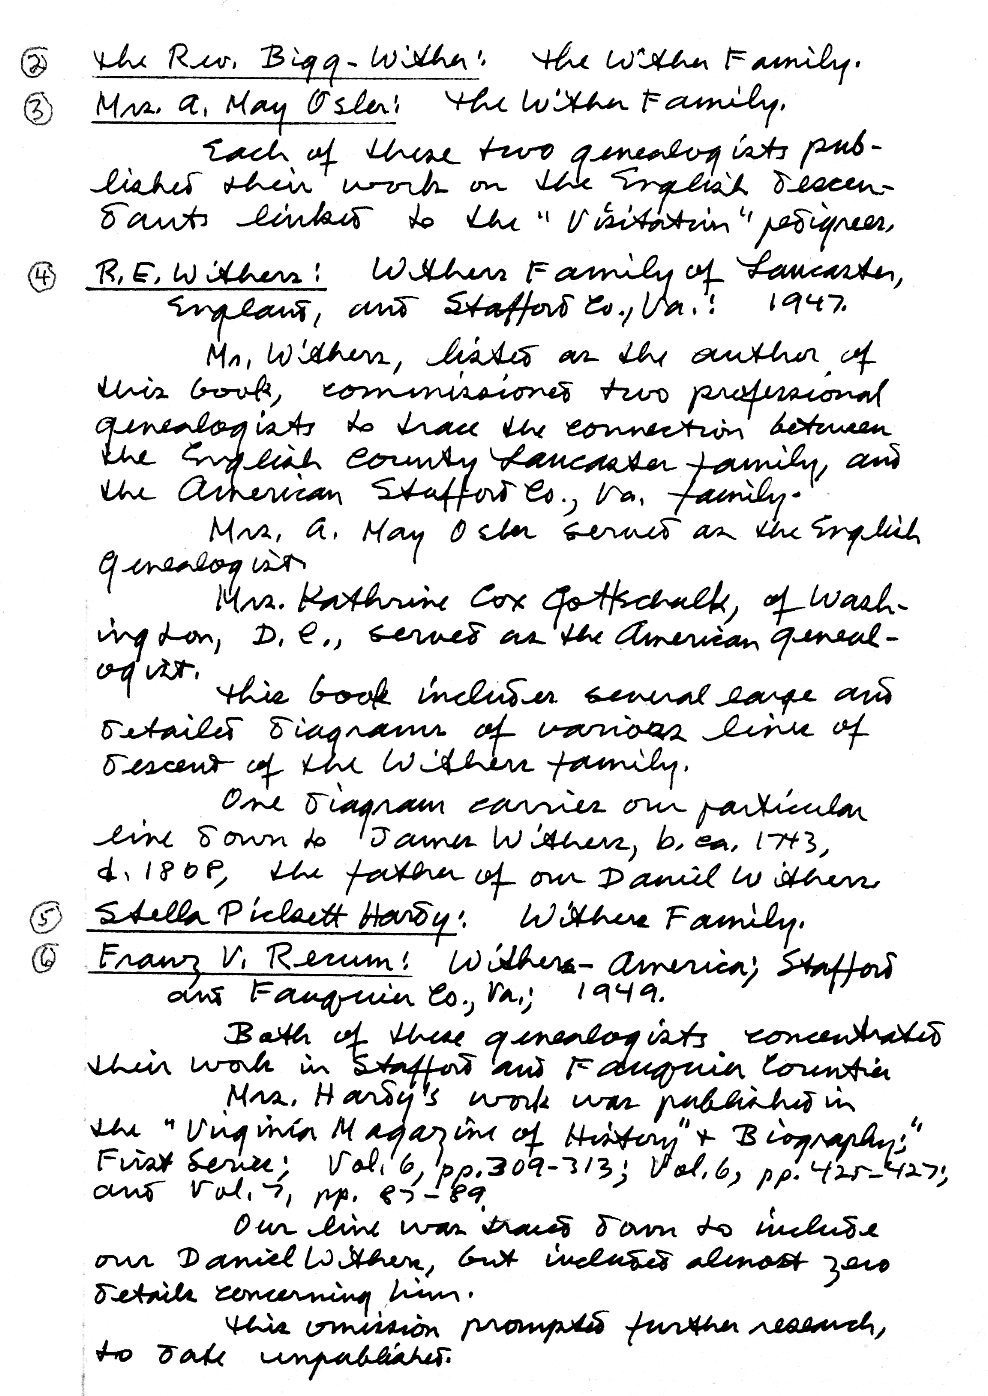 ② the Rev. Bigg-Wither: the Wither Family.
③ Mrs. A. May Osler: the Wither Family.
Each of these two genealogists pub-
lished their work on the English descen-
dants linked to the "Visitation" pedigrees.
④ R.E. Withers: Withers Family of Lancaster,
England, and Stafford Co., Va.: 1947.
Mr. Withers, listed as the author of
this book, commissioned two professional
genealogists to trace the connection between
the English County Lancaster family, and
the American Stafford Co., Va. family.
Mrs. A. May Osler served as the English
genealogist.
Mrs. Kathrine Cox Gottschalk, of Wash-
ington, D.C., served as the American geneal-
ogist.
this book includes several large and
detailed diagrams of various lines of
descent of the Withers family.
One diagram carries our particular
line down to James Withers, b. ca. 1743,
d. 1808, the father of our Daniel Withers.
⑤ Stella Pickett Hardy: Withers Family.
⑥ Franz V. Recum: Withers - America; Stafford
and Fauquier Co., Va.; 1949.
Both of these genealogists concentrated
their work in Stafford and Fauquier Counties
Mrs. Hardy's work was published in
the "Virginia Magazine of History" + Biography;"
First Series; Vol. 6, pp. 309-313; Vol. 6, pp. 425-427;
and Vol. 7, pp. 87-89.
Our line was traced down to include
our Daniel Withers, but included almost zero
details concerning him.
this omission prompted further research,
to date unpublished.